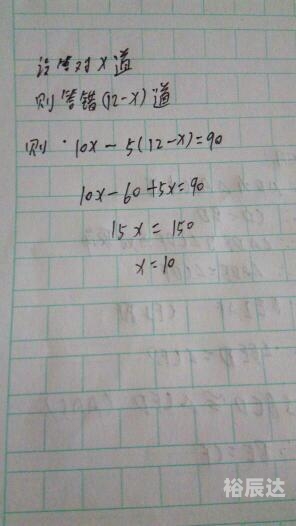 设答对X道
则答错(12-X)道
则·10X-5(12-X)=90
10X-60+5X=90
15X=150
X=10
裕辰达